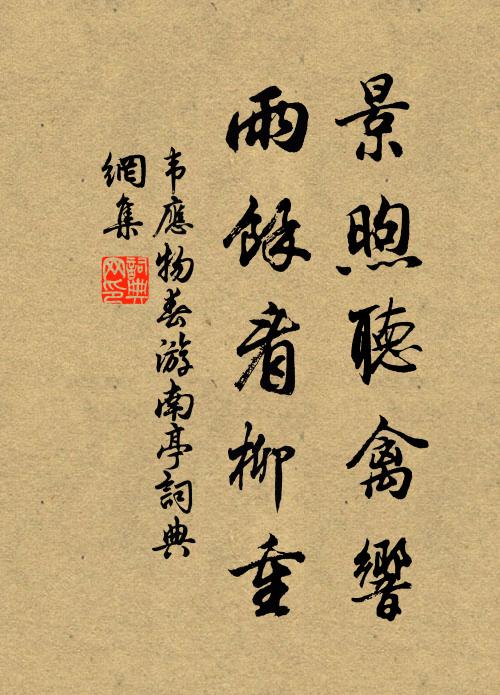 景煦聽禽響
雨餘看柳重
韦應物春游南亭詞典
網集
詞典
网印